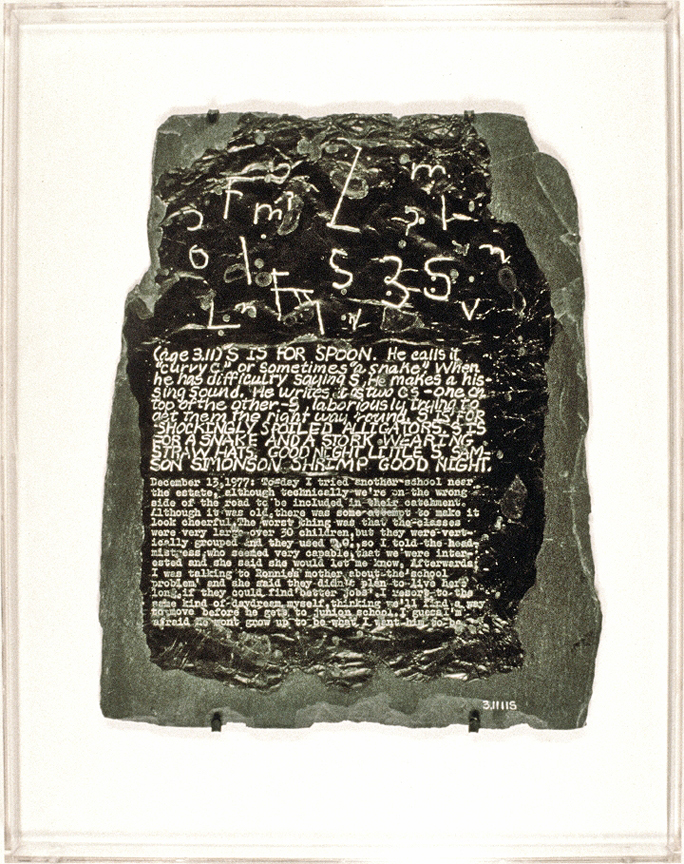 F m L m
o d S 3 S n
L F v
(age 3.11) S IS FOR SPOON. He calls it
"curvy C" or sometimes "a snake" When
he has difficulty saying S, He makes a his-
sing sound. He writes it as two cs - one on
top of the other - S, laboriously trying to
get them the right way round. S IS FOR
SHOCKINGLY SPOILED ALLIGATORS. S IS
FOR A SNAKE AND A STORK WEARING
STRAW HATS. GOOD NIGHT LITTLE S. SAM-
SON SIMONSON SHRIMP GOOD NIGHT.
December 13, 1977: Today I tried another school near
the estate, although technically we're on the wrong
side of the road to be included in their catchment.
Although it was old, there was some attempt to make it
look cheerful. The worst thing was that the classes
were very large over 30 children, but they were vert-
ically grouped and they used so I told the head-
mistress, who seemed very capable, that we were inter-
ested and she said she would let me know. Afterwards
I was talking to Ronnie's mother about the school
problem, and she said they didn't plan to live here
long, if they could find better jobs. I resort to the
same kind of daydream myself, thinking we'll find a way
to move before he gets to junion school. I guess I'm
afraid he wont grow up to be what I want him to be.
3.111S